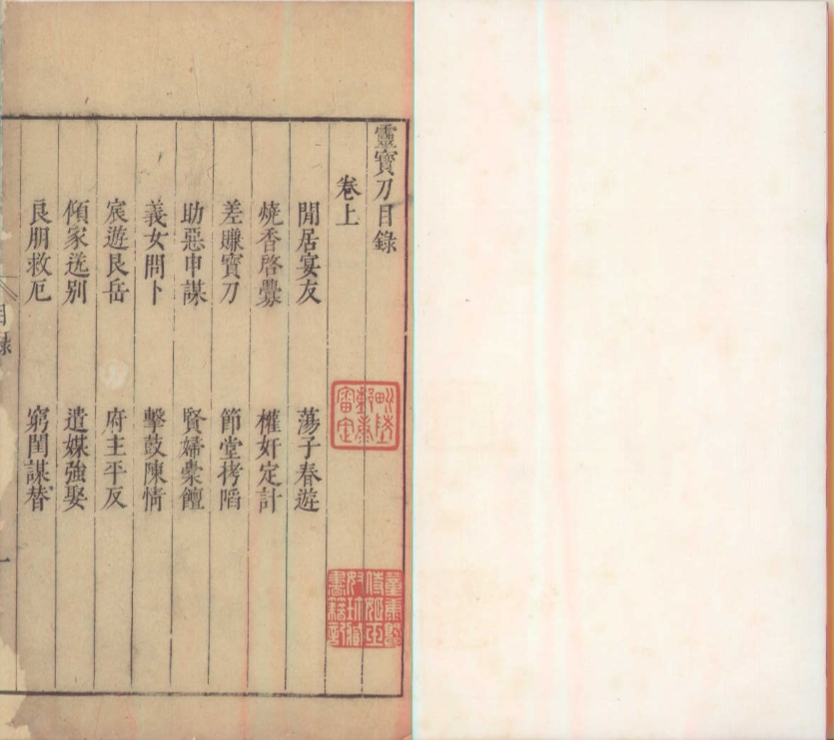 靈寶刀目錄
卷上
閒居宴友 蕩子春遊
燒香啓釁 權奸定計
差賺寶刀 節堂拷陷
助惡申謀 賢婦橐饘
義女問卜 擊鼓陳情
宸遊艮岳 府主平反
傾家送別 遣媒強娶
良朋救厄 窮閨謀替
目錄
一